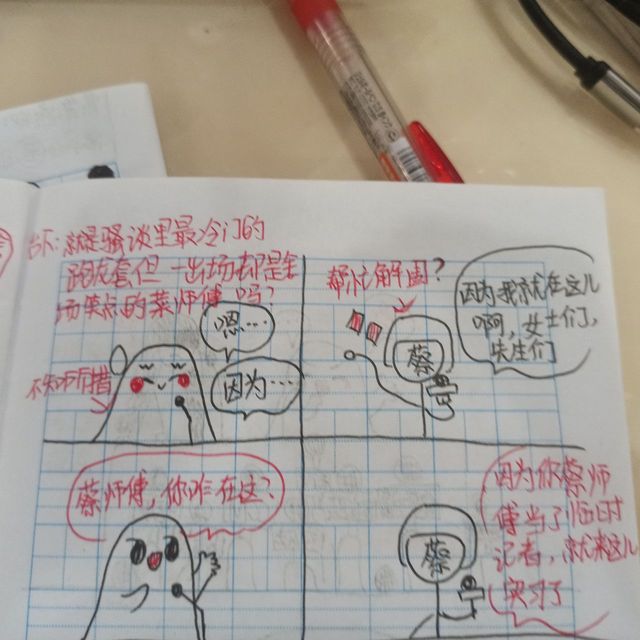 台下：就是骚谈里最冷门的
跑龙套但一出场都是全
场焦点的蔡师傅吗？
嗯…
因为…
不知所措
帮忙解围？
因为我就在这儿
啊，女士们，
先生们
蔡
蔡师傅，你咋在这？
因为你蔡师
傅当了临时
记者，就来这儿
实习了
蔡